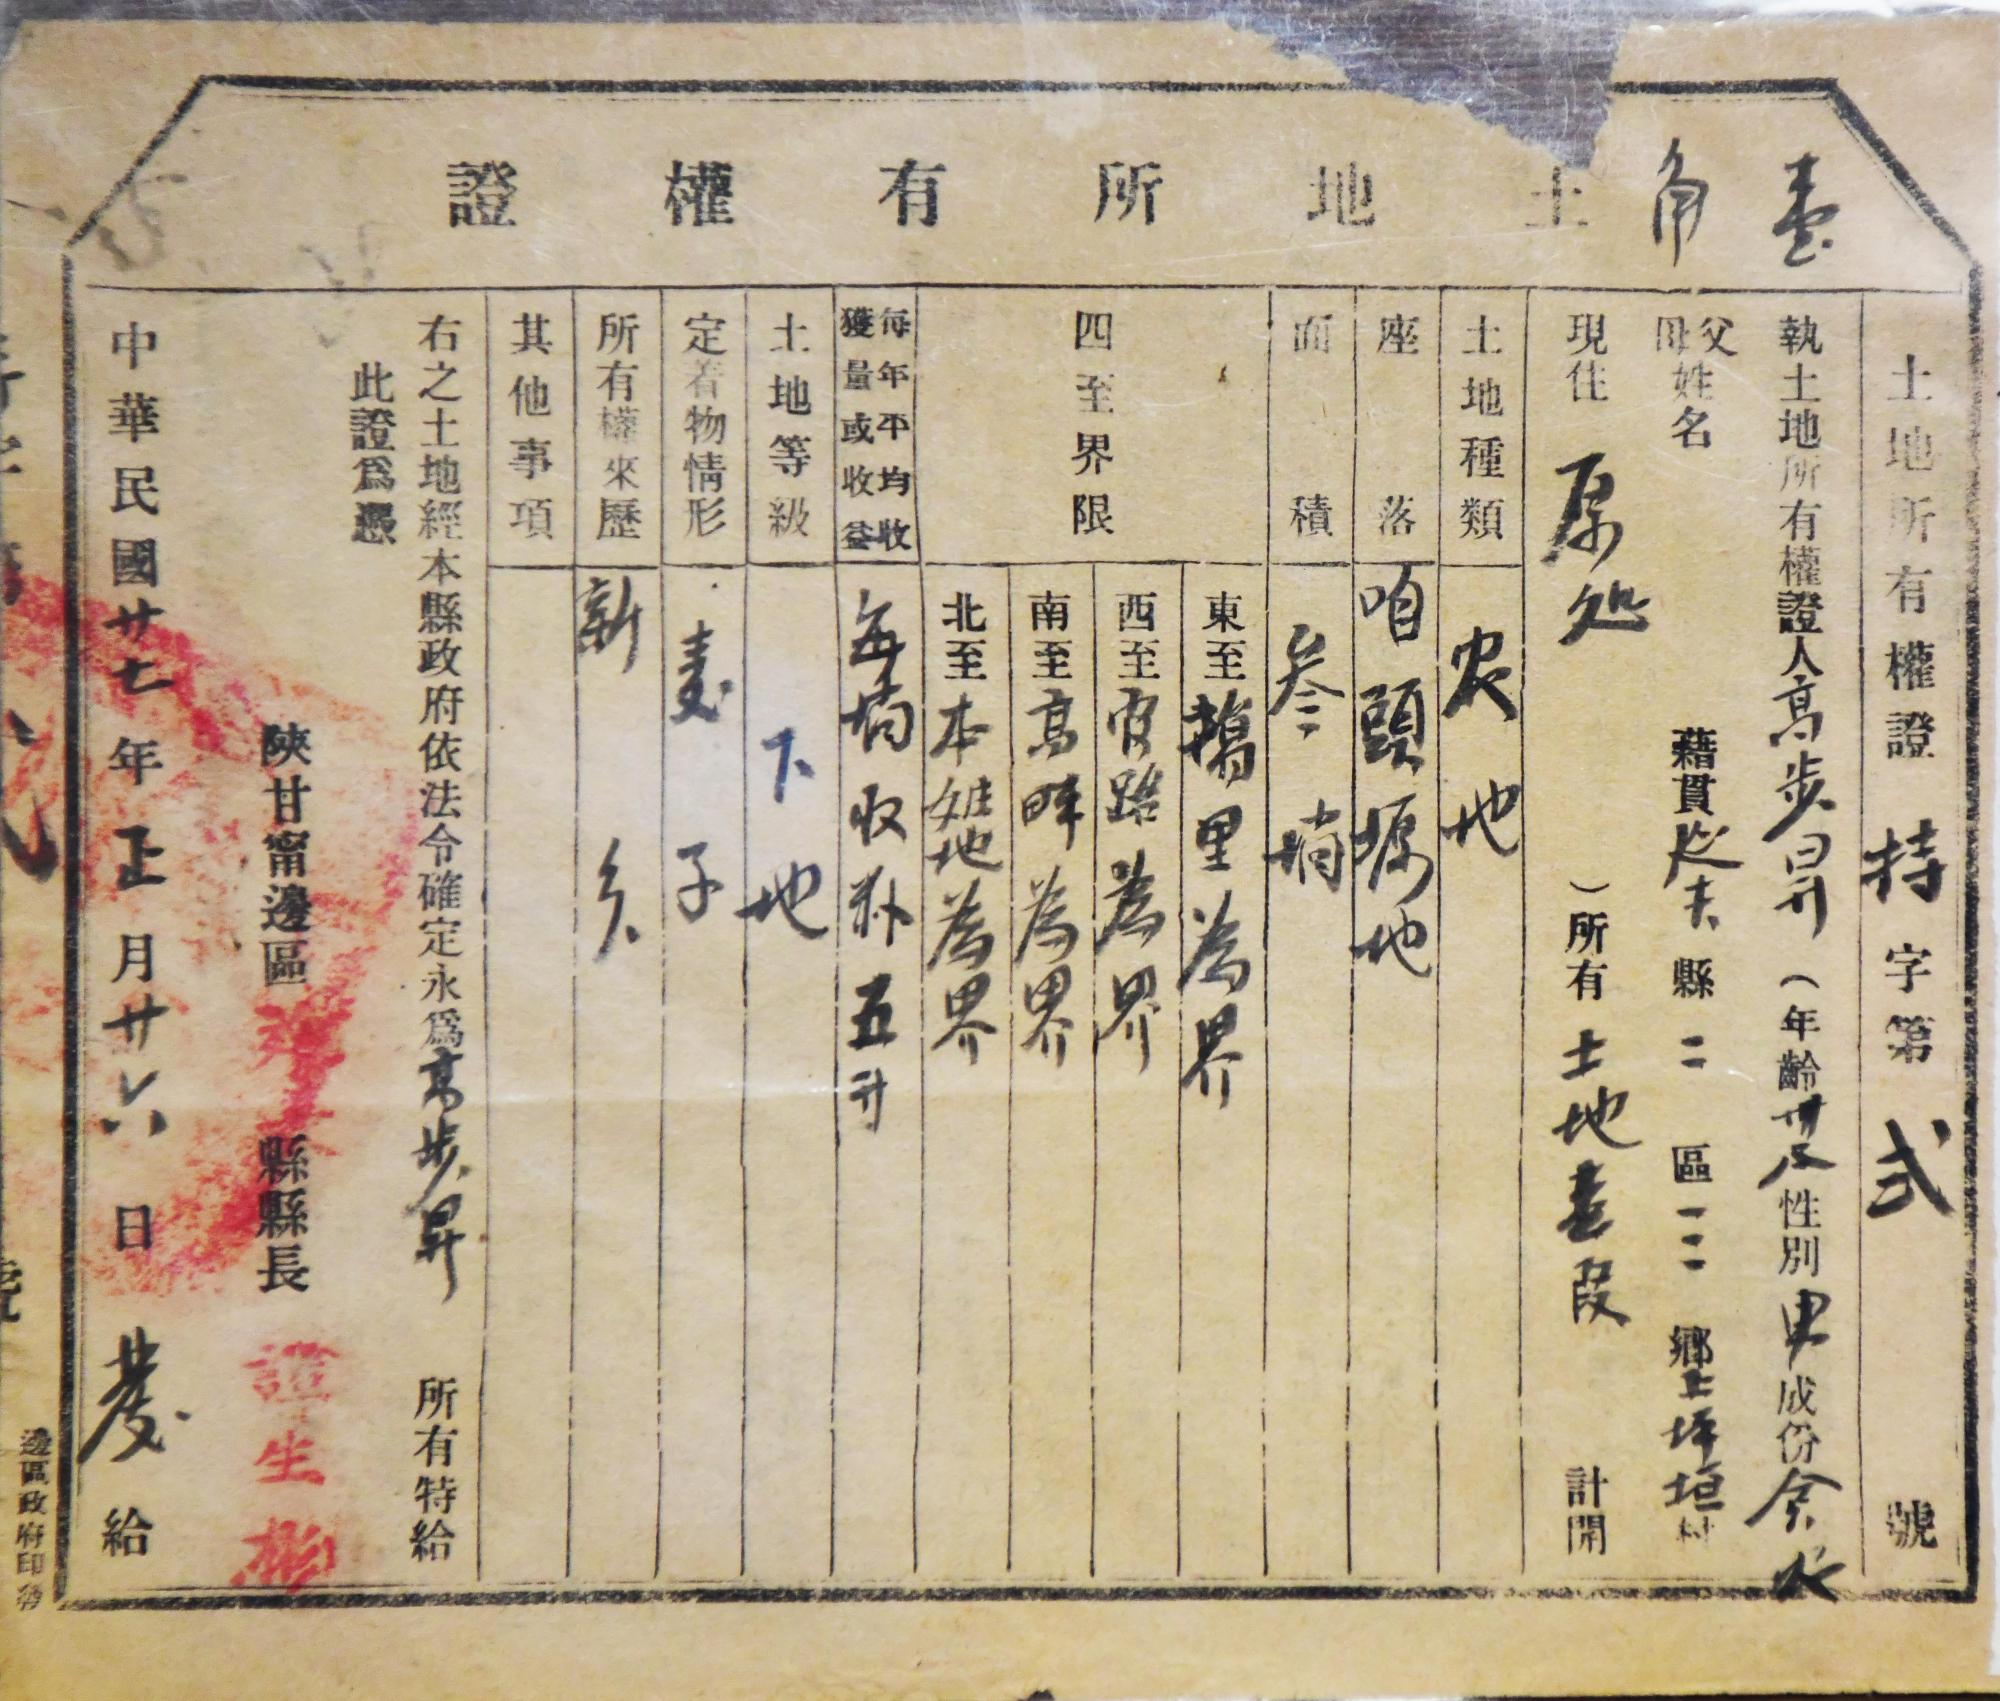 土地所有權證
壹角
土地所有權證持字第弍號
執土地所有權證人高步昇（年齡 性別男成份
父母姓名 藉貫 縣二區三鄉 坪垣村
現住原处）所有土地壹段計開
土地種類 农地
座落 咱頭塬地
面積 叁垧
四至界限
東至 里為界
西至官路為界
南至高 為界
北至本 地為界
每年平均收獲量或收益 每垧收 五升
土地等級 下地
定着物情形 麦子
所有權來歷 新
其他事項
右之土地經本縣政府依法令確定永爲高步昇所有特給
此證爲憑
陝甘甯邊區 縣縣長
中華民國廿七年正月廿六日 給
邊區政府印